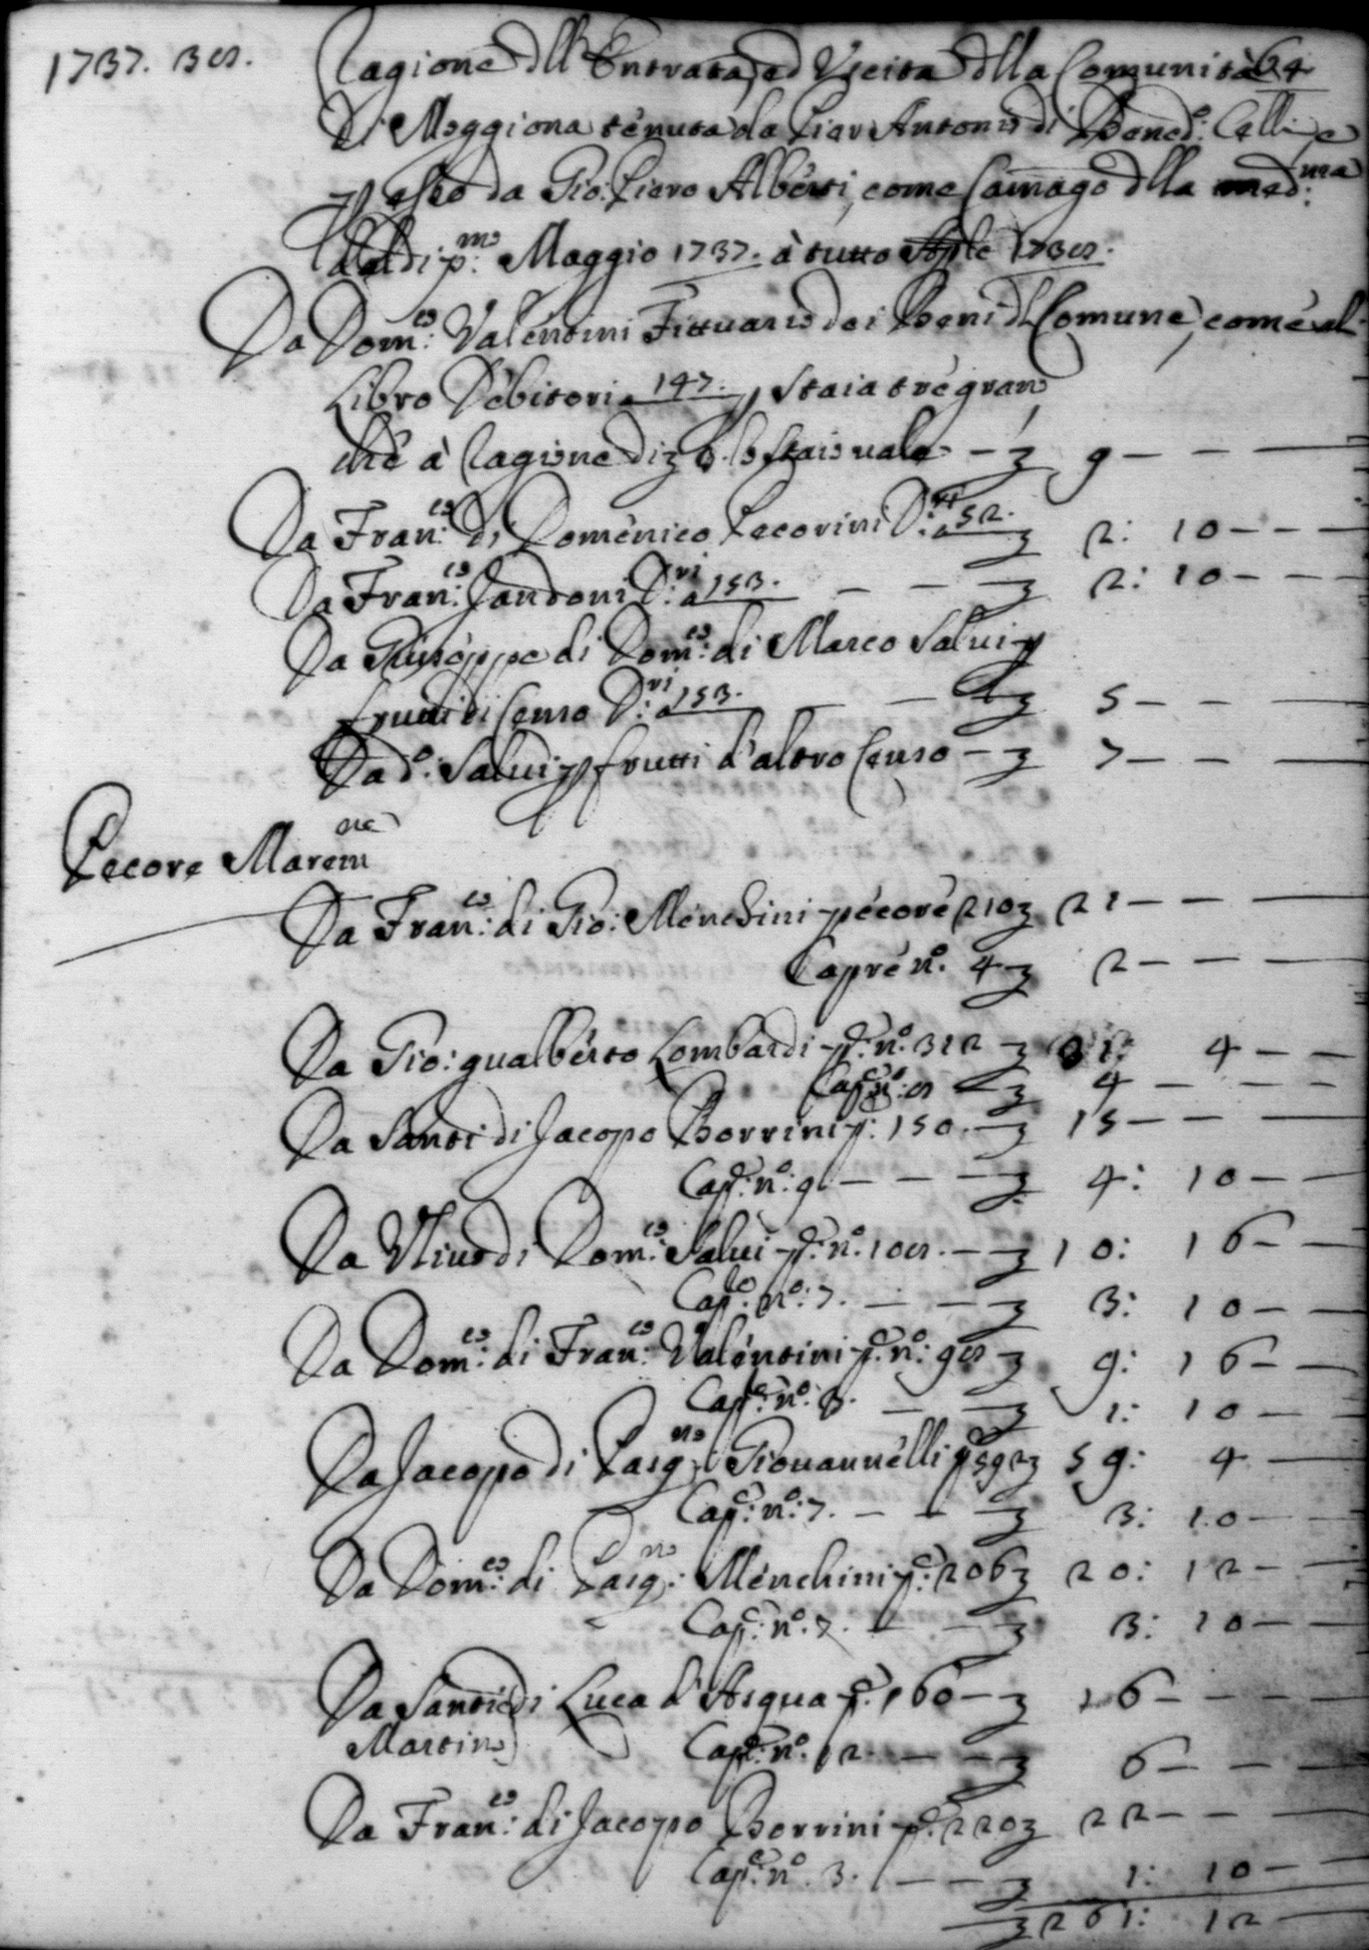 1737. 38. Ragione dll' Entrata, ed Uscita dlla Comunità 64
di Moggiona tenuta da Pier Antonio di Bened:º Celli, e
p esso da Gio: Piero Alberti, come Camago dlla med:ma
dal di p:mo Maggio 1737. à tutto Aple 1738.
Da Dom:co Valentini Fittuario dei Beni dl Comune, come al
Libro Debitori a 147. p Staia tre grano,
che à ragione di z 3. lo staio vale - z 9 - - -
Da Fran:co di Domenico Pecorini D:ri a 52. z 2: 10 - - -
Da Fran:co Jandoni D:ri a 153. - - z 2: 10 - - -
Da Giuseppe di Dom:co di Marco Salvi p
frutti di Censo D:ri a 153. - - z 5 - - -
Da d:º Salvi p frutti d'altro Censo - z 7 - - -
Pecore Marem:ne
Da Fran:co di Gio: Menchini pecore 210 z 21 - - -
Capre nº. 4 z 2 - - -
Da Gio: gualberto Lombardi p:e nº. 312 - z 31: 4 - -
Cap:e nº: 8 - z 4 - - -
Da Santi di Jacopo Borrini p: 150. - z 15 - - -
Cap:e nº: 9 - - - z 4: 10 - -
Da Ulivo di Dom:co Salvi p:e nº. 108. - z 10: 16 - -
Cap:e nº: 7. - - z 3: 10 - -
Da Dom:co di Fran:co Valentini p:e nº: 98 z 9: 16 - -
Cap:e nº: 3. - - z 1: 10 - -
Da Jacopo di Pasq:no Giovannelli p:e 592 z 59: 4 - -
Cap:e nº: 7. - - z 3: 10 - -
Da Dom:co di Pasq:no Menchini p:e 206 z 20: 12 - -
Cap:e nº: 7. - - z 3: 10 - -
Da Santi di Luca d'Asqua p:e 160 - z 16 - - -
Martino Cap:e nº. 12. - - z 6 - - -
Da Fran:co di Jacopo Borrini p:e 220 z 22 - - -
Cap:e nº. 3. - - z 1: 10 - -
z 261: 12 -